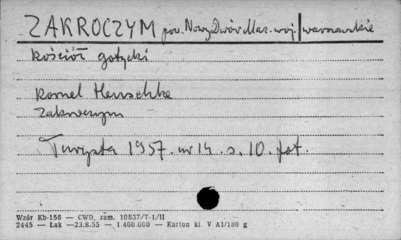 ZAKROCZYM pow. Nowy Dwór Maz. woj. warszawskie
kościół gotycki
Kornel Heuschke
Zakroczym
Turysta 1957. nr 14. s. 10. fot.
Wzór Kb-156 — CWD, zam. 10837/T-1/II
2445 — Łak — 23.8.55 — 1.400.000 — Karton kl. V A1/180 g